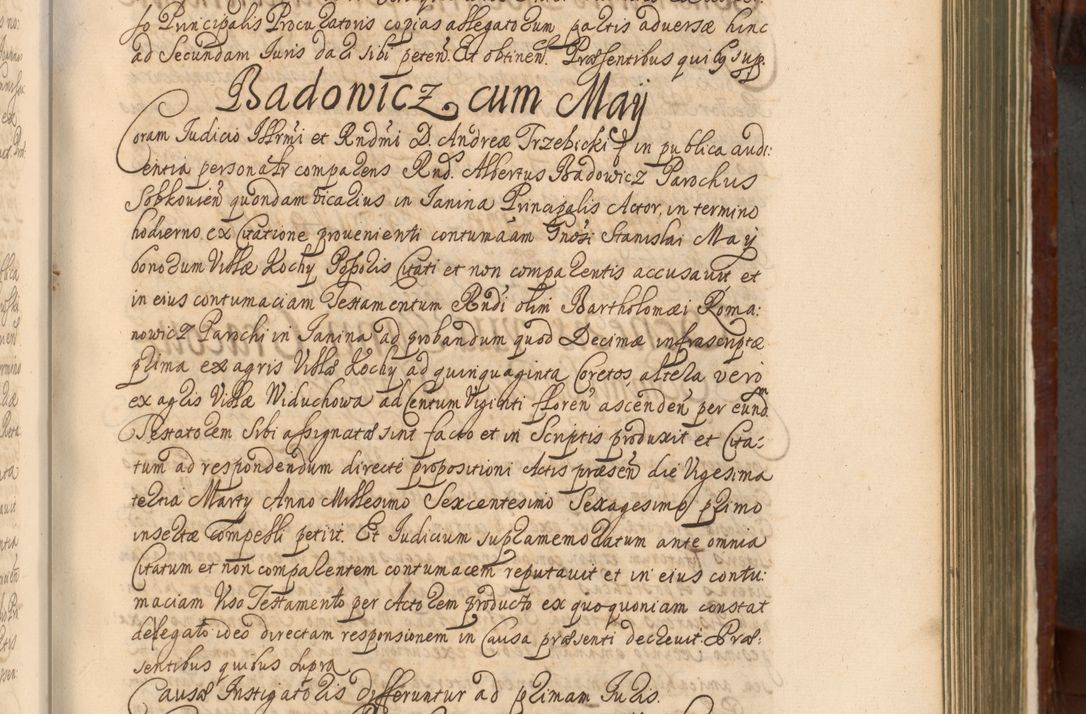 so Principalis Procuratoris copias allegatorum partis adversæ hinc
ad Secundam Iuris dari sibi peteń. Et obtineń. Præsentibus quibg sup.
Badowicz cum Maÿ
Coram Iudicio Illrmi et Rndmi D. Andreæ Trzebicki in publica audi:
entia personalr comparens Rnd. Albertus Badowicz Parochus
Sobkovień quondam vicarius in Ianina Principalis Actor, in termino
hodierno ex Citatione provenienti contumaam Gnosi Stanislai May
bonorum Villæ Kochy Possoris Citati et non comparentis accusavit et
in eius contumaciam Testamentum Rndi olim Bartholomæi Roma:
nowicz Parochi in Ianina ad probandum quod Decimæ infrascriptæ
prima ex agris Villæ Kochy ad quinquaginta Coretos, altera vero
ex agris Villæ Widuchowa ad Centum Viginti floreń ascendeń per eund
em
Testatorem Sibi assignatæ sint facto et in Scriptis produxit et Cita:
tum ad respondendum directé propositioni Actis præseń die Vigesima
tertia Marty Anno Millesimo Sexcentesimo Sexagesimo primo
insertæ compelli petiit. Et Iudicium supramemoratum ante omnia
Citatum et non comparentem contumacem reputavit et in eius contu:
maciam Viso Testamento per Actorem producto ex quo quoniam constat
de legato ideo directam responsionem in Causa præsenti decrevit. Præ:
sentibus quibus supra
Causæ Instigatoris differuntur ad primam Iuris.